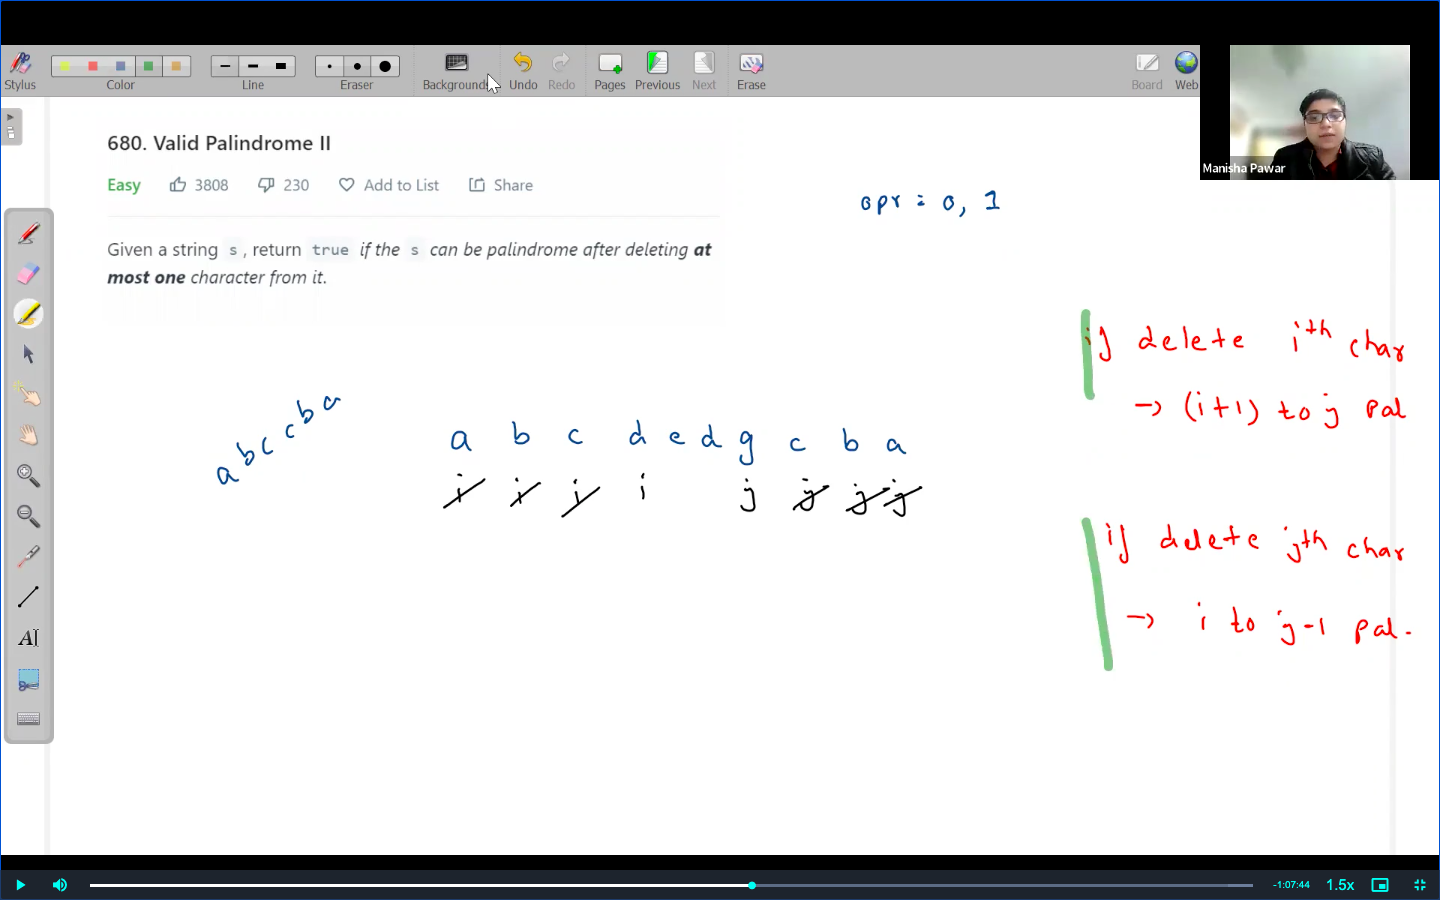 Stylus Color Line Eraser Backgrounds Undo Redo Pages Previous Next Erase Board Web
Manisha Pawar
680. Valid Palindrome II
Easy 3808 230 Add to List Share
opr = 0, 1
Given a string s, return true if the s can be palindrome after deleting at
most one character from it.
if delete ith char
→ (i+1) to j pal
a b c c b a
a b c d e d g c b a
i i i i j j j j
if delete jth char
→ i to j-1 pal.
AI
-1:07:44 1.5x